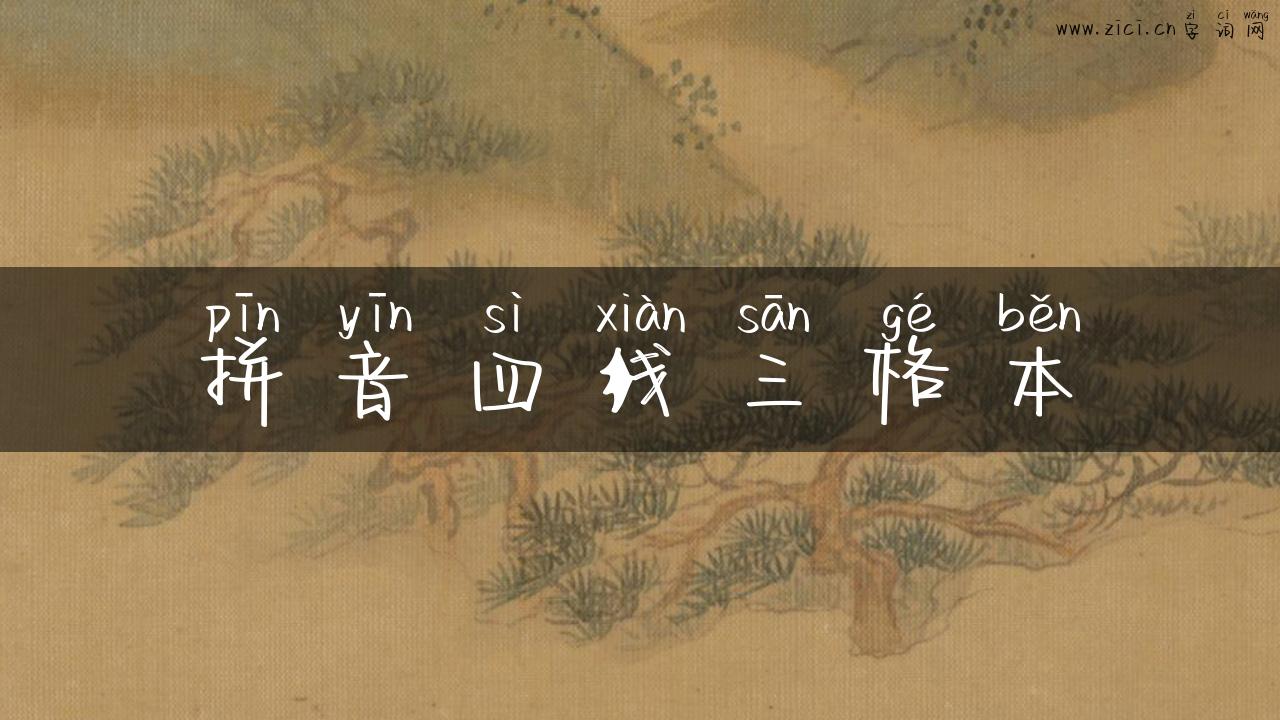 zì cí wǎng
www.zici.cn 字词网
pīn yīn sì xiàn sān gé běn
拼音四线三格本